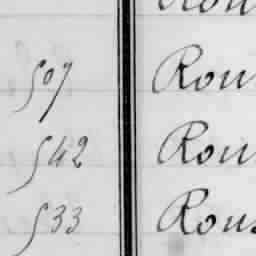 507 Rou
542 Rou
533 Rous